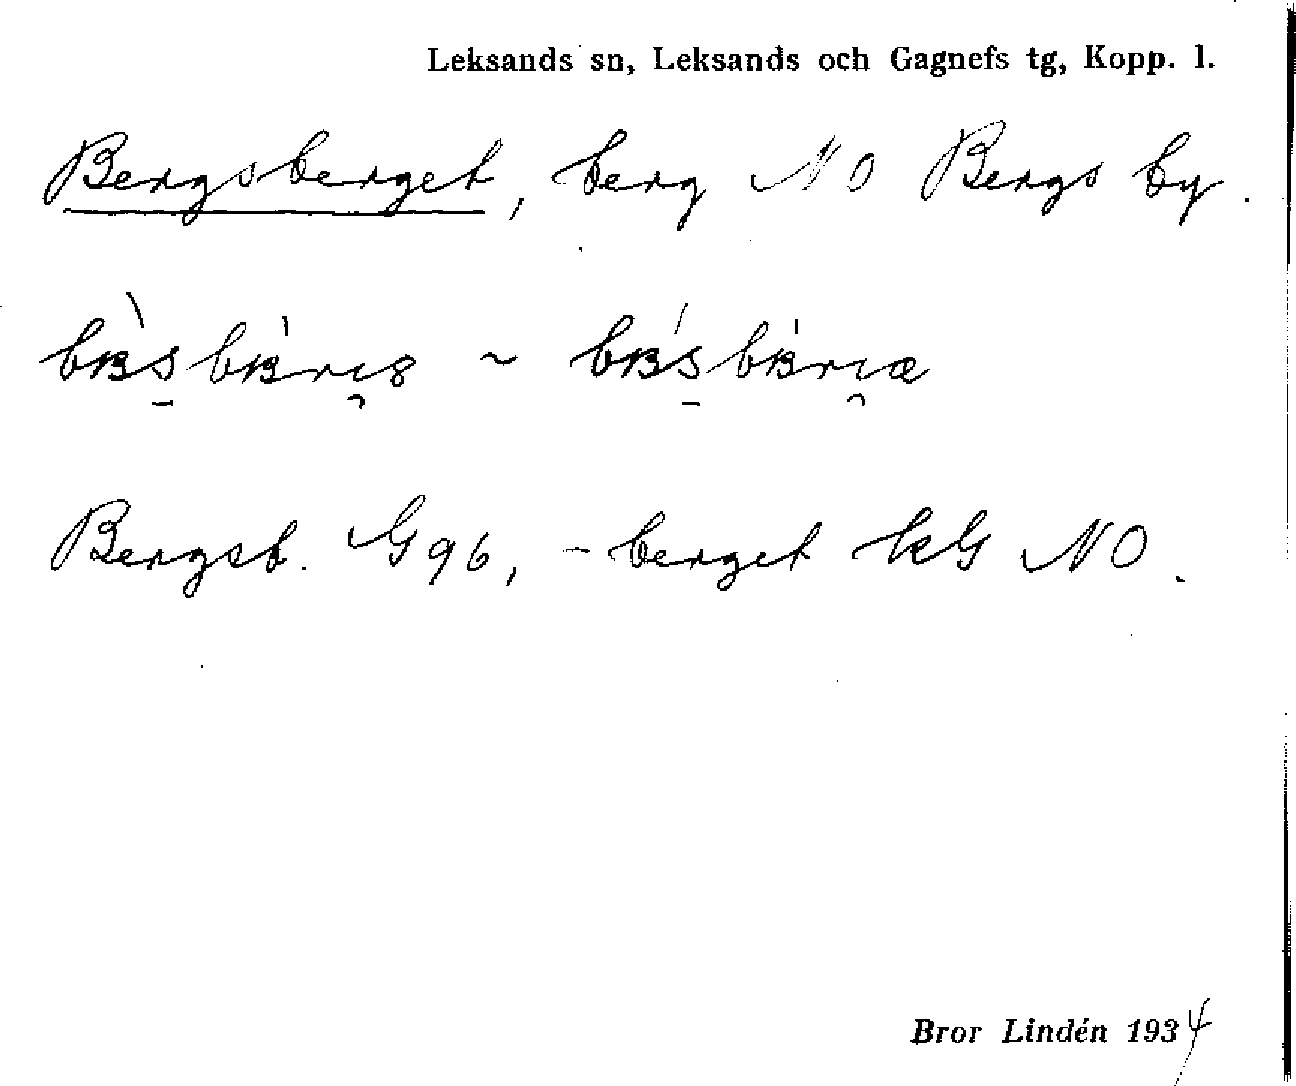 Leksands sn, Leksands och Gagnefs tg, Kopp. l.
Bergsberget, berg NO Bergs by.
~
Bergsb. G96, -berget kG NO.
Bror Lindén 1934